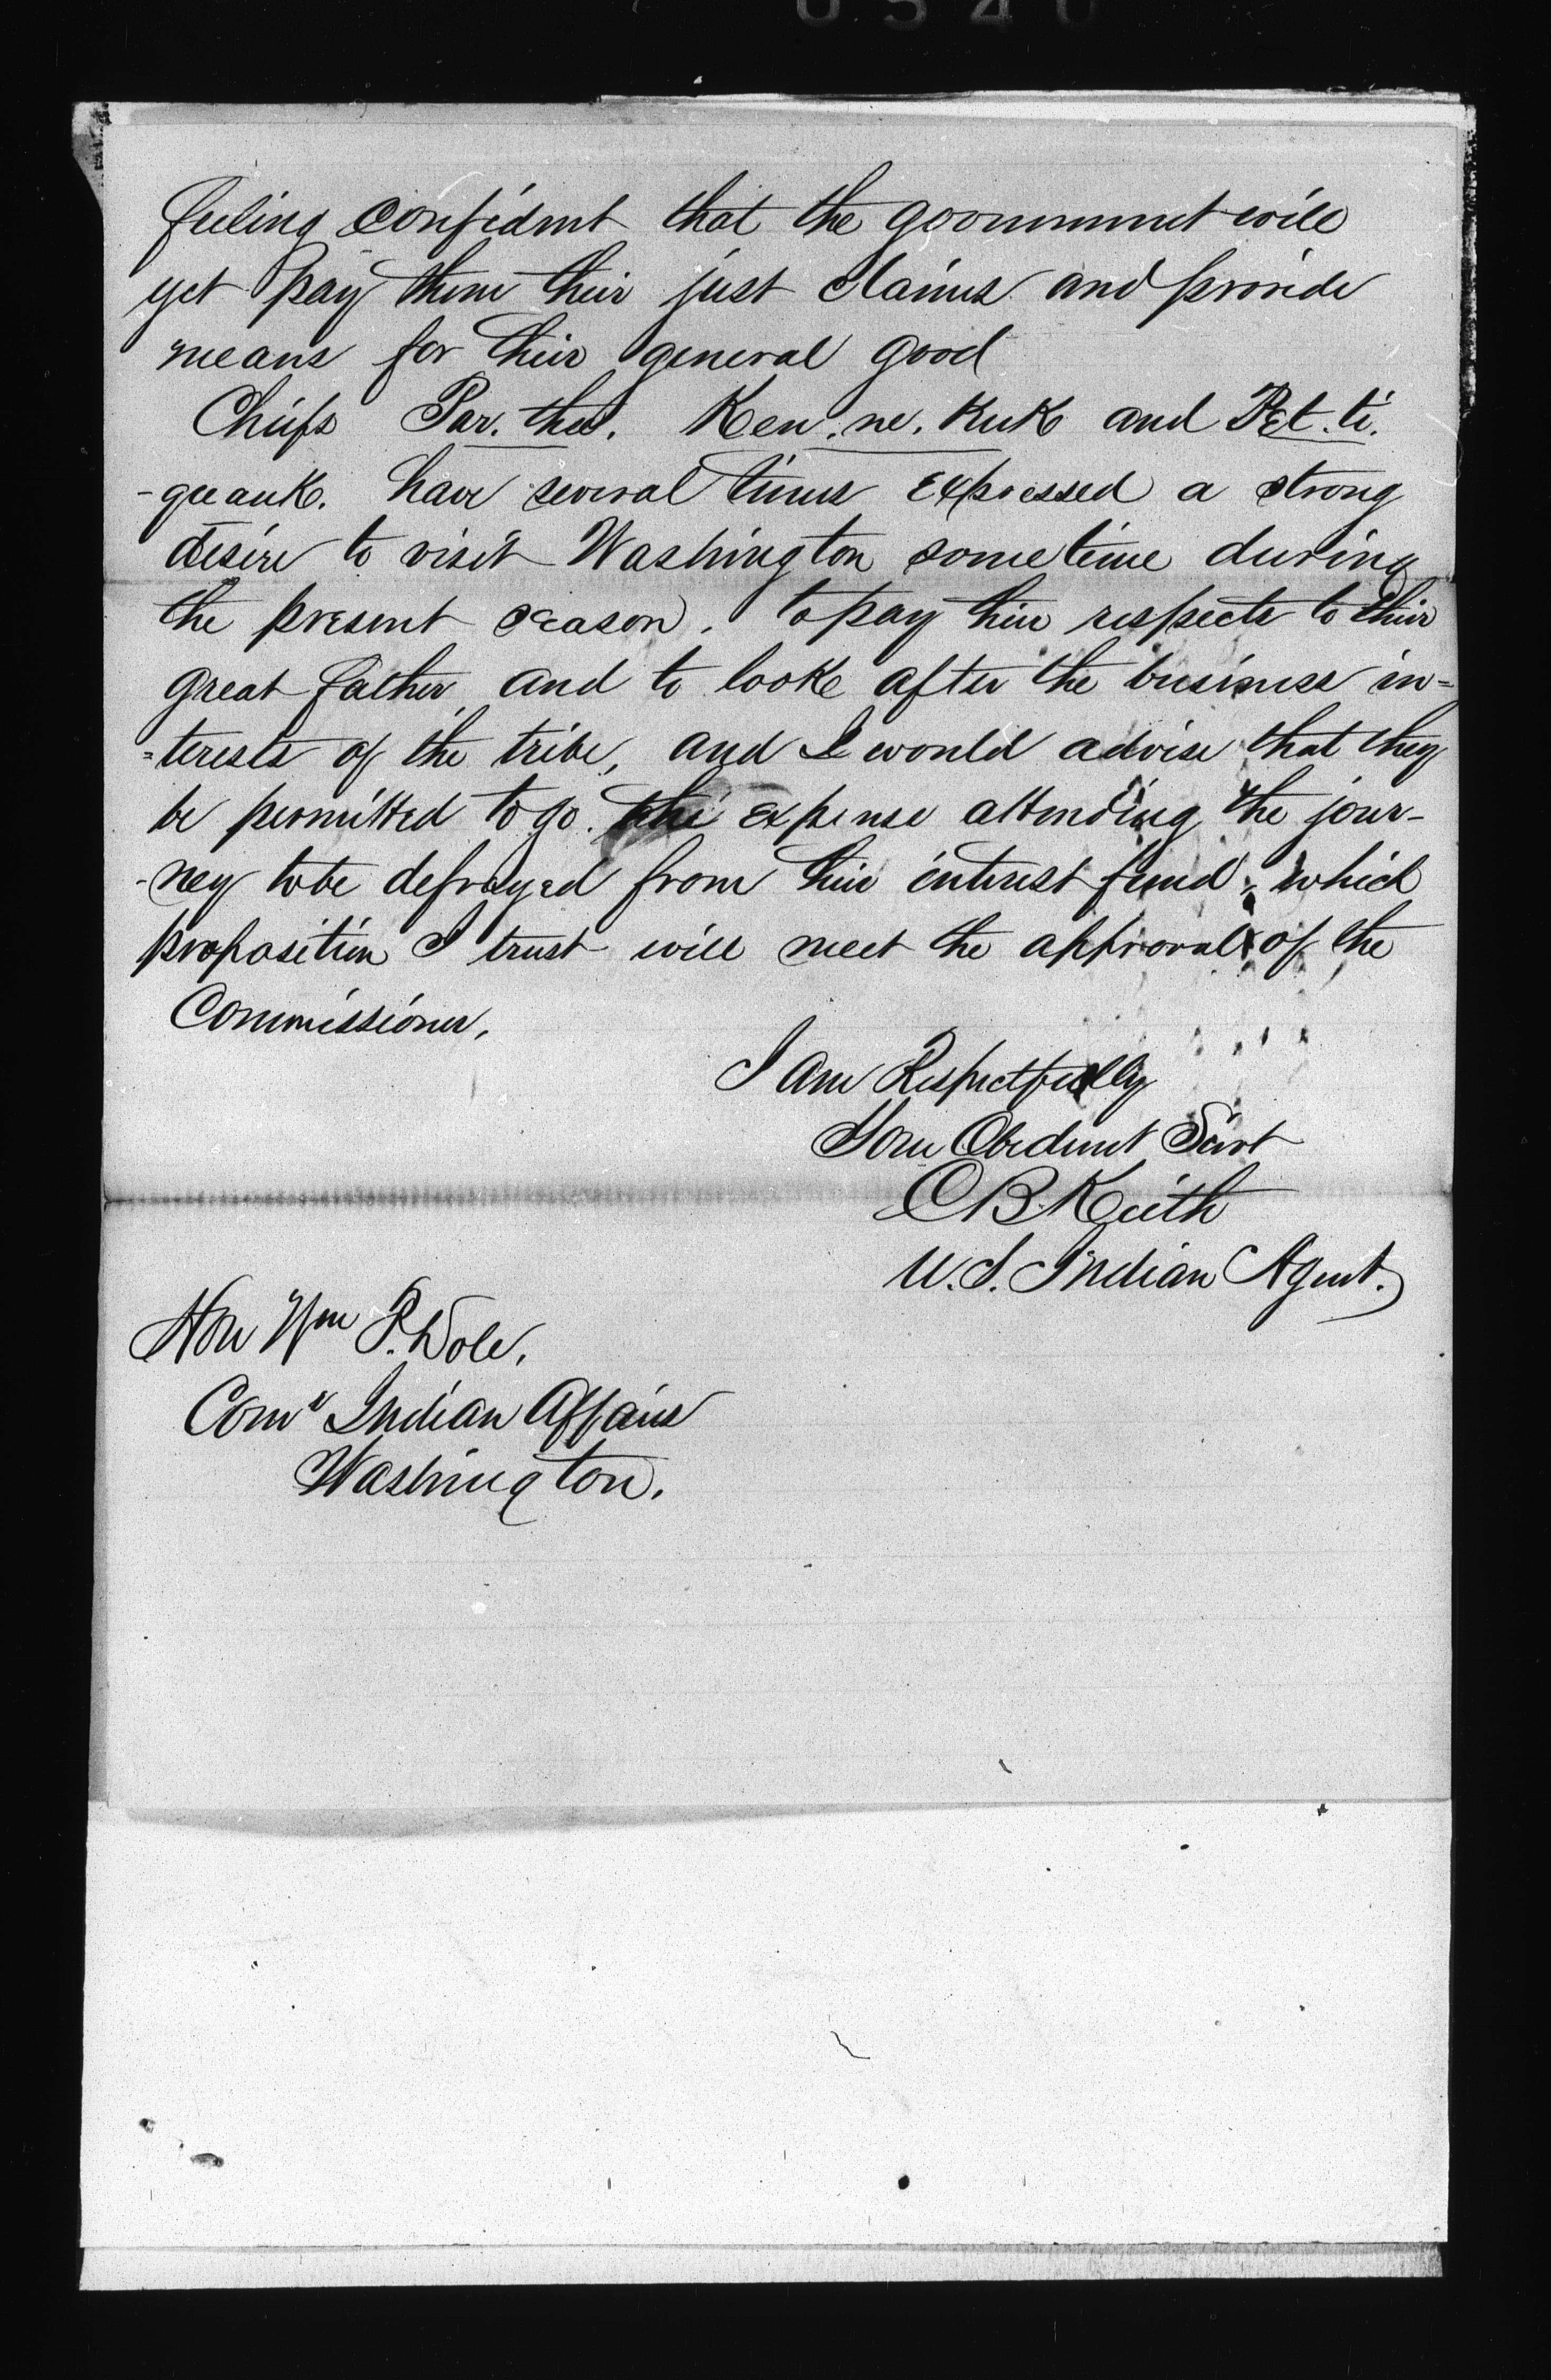 0540
feeling confident that the government will
yet pay them their just claims and provide
means for their general good
Chiefs Par. thee. Ken. ne. KuK and Pet. ti.
-quauk. have several times expressed a strong
desire to visit Washington sometime during
the present season. to pay their respects to their
great father, and to look after the business in=
=terests of the tribe, and I would advise that they
be permitted to go. the expense attending the jour-
-ney to be defrayed from their interest fund, which
proposition I trust will meet the approval of the
Commissioner.
I am Respectfully
Your Obedient Servt
C B Keith
U.S. Indian Agent.
Hon Wm P. Dole,
Comr Indian Affairs
Washington.